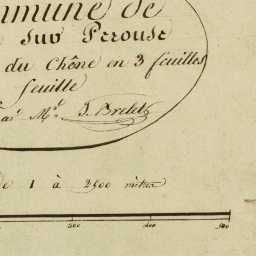 mmune de
sur Perouse
du Chêne en 3 feuilles
feuille
par Mr.
de 1 à 2500 mètres
200 400 500